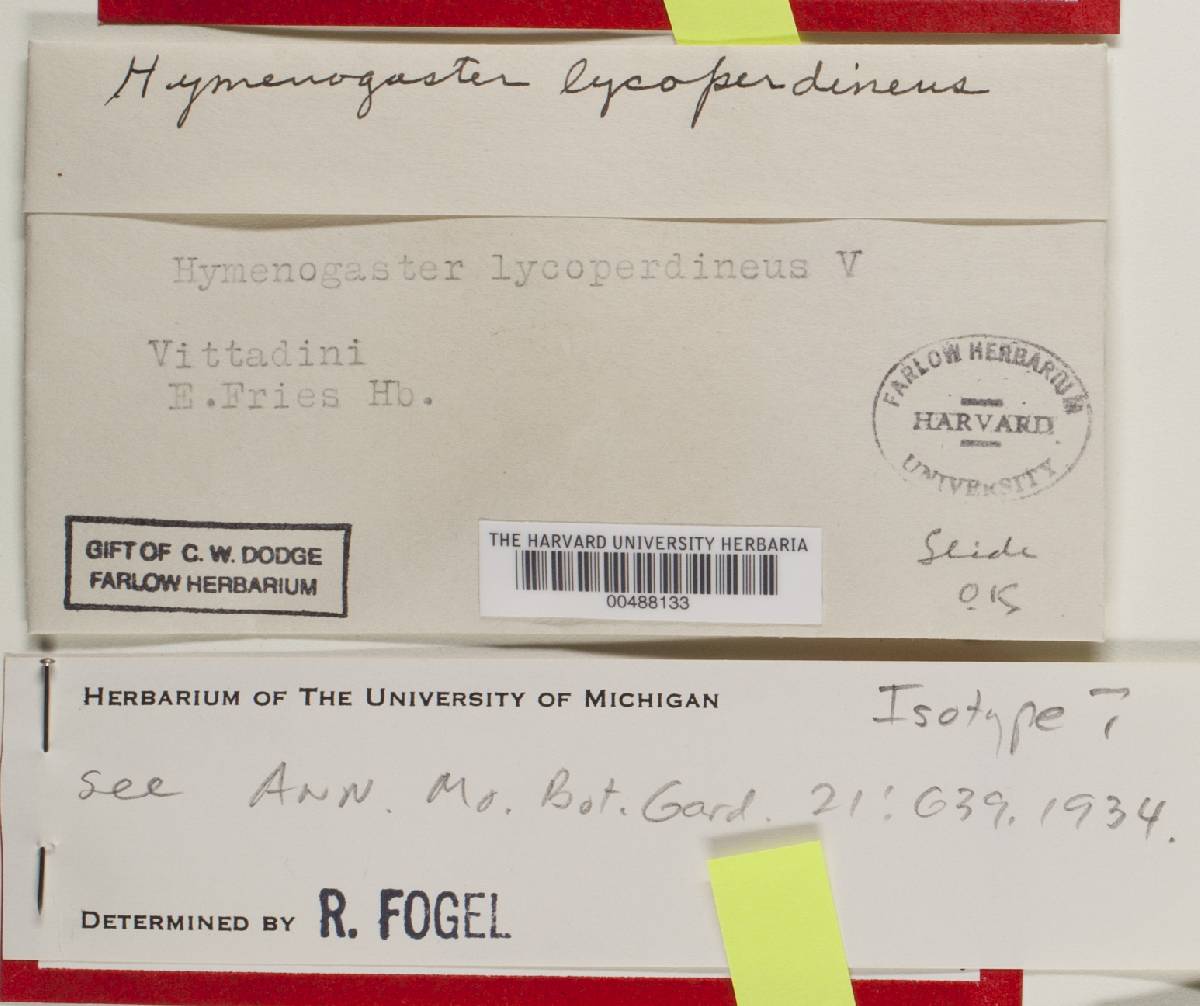 Hymenogaster lycoperdineus
Hymenogaster lycoperdineus V
Vittadini
E.Fries Hb.
FARLOW HERBARIUM
HARVARD
UNIVERSITY
GIFT OF C. W. DODGE
FARLOW HERBARIUM
THE HARVARD UNIVERSITY HERBARIA
00488133
Slide
OK
HERBARIUM OF THE UNIVERSITY OF MICHIGAN
Isotype ?
see ANN. Mo. Bot. Gard. 21: 639. 1934.
DETERMINED BY R. FOGEL